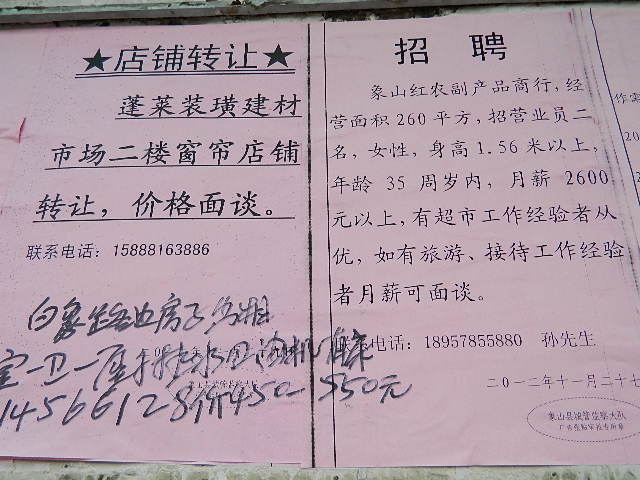 ★店铺转让★
蓬莱装璜建材
市场二楼窗帘店铺
转让，价格面谈。
联系电话：15888163886
白象路边房子出租
室一卫一
14566128价450-550元
招 聘
象山红农副产品商行，经
营面积260平方，招营业员二
名，女性，身高1.56米以上，
年龄 35 周岁内，月薪 2600
元以上，有超市工作经验者从
优，如有旅游、接待工作经验
者月薪可面谈。
电话：18957855880 孙先生
二〇一二年十一月二十七
象山县城管监察大队
作实
20